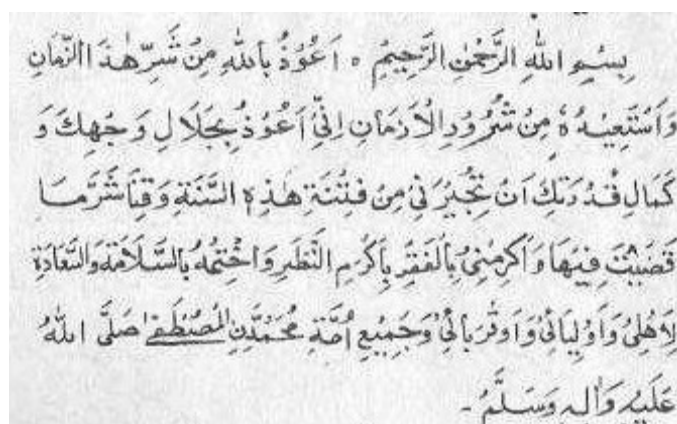 بِسْمِ اللهِ الرَّحْمٰنِ الرَّحِيْمِ ہ اَعُوْذُ بِاللهِ مِنْ شَرِّ هٰذَا الزَّمَانِ
وَاَسْتَعِيْذُهٗ مِنْ شُرُوْرِ الْاَزْمَانِ اِنِّىْ اَعُوْذُ بِجَلَالِ وَجْهِكَ وَ
كَمَالِ قُدْرَتِكَ اَنْ تُجِيْرَنِىْ مِنْ فِتْنَةِ هٰذِهِ السَّنَةِ وَقِنَا شَرَّ مَا
قَضَيْتَ فِيْهَا وَاَكْرِمْنِىْ بِالْفَقْرِ بِاَكْرَمِ النَّظَرِ وَاخْتِمْهُ بِالسَّلَامَةِ وَالسَّعَادَةِ
لِاَهْلِىْ وَاَوْلِيَائِىْ وَاَقْرَبَائِىْ وَجَمِيْعِ اُمَّةِ مُحَمَّدِنِ الْمُصْطَفٰى صَلَّى اللهُ
عَلَيْهِ وَاٰلِهٖ وَسَلَّمَ ۔